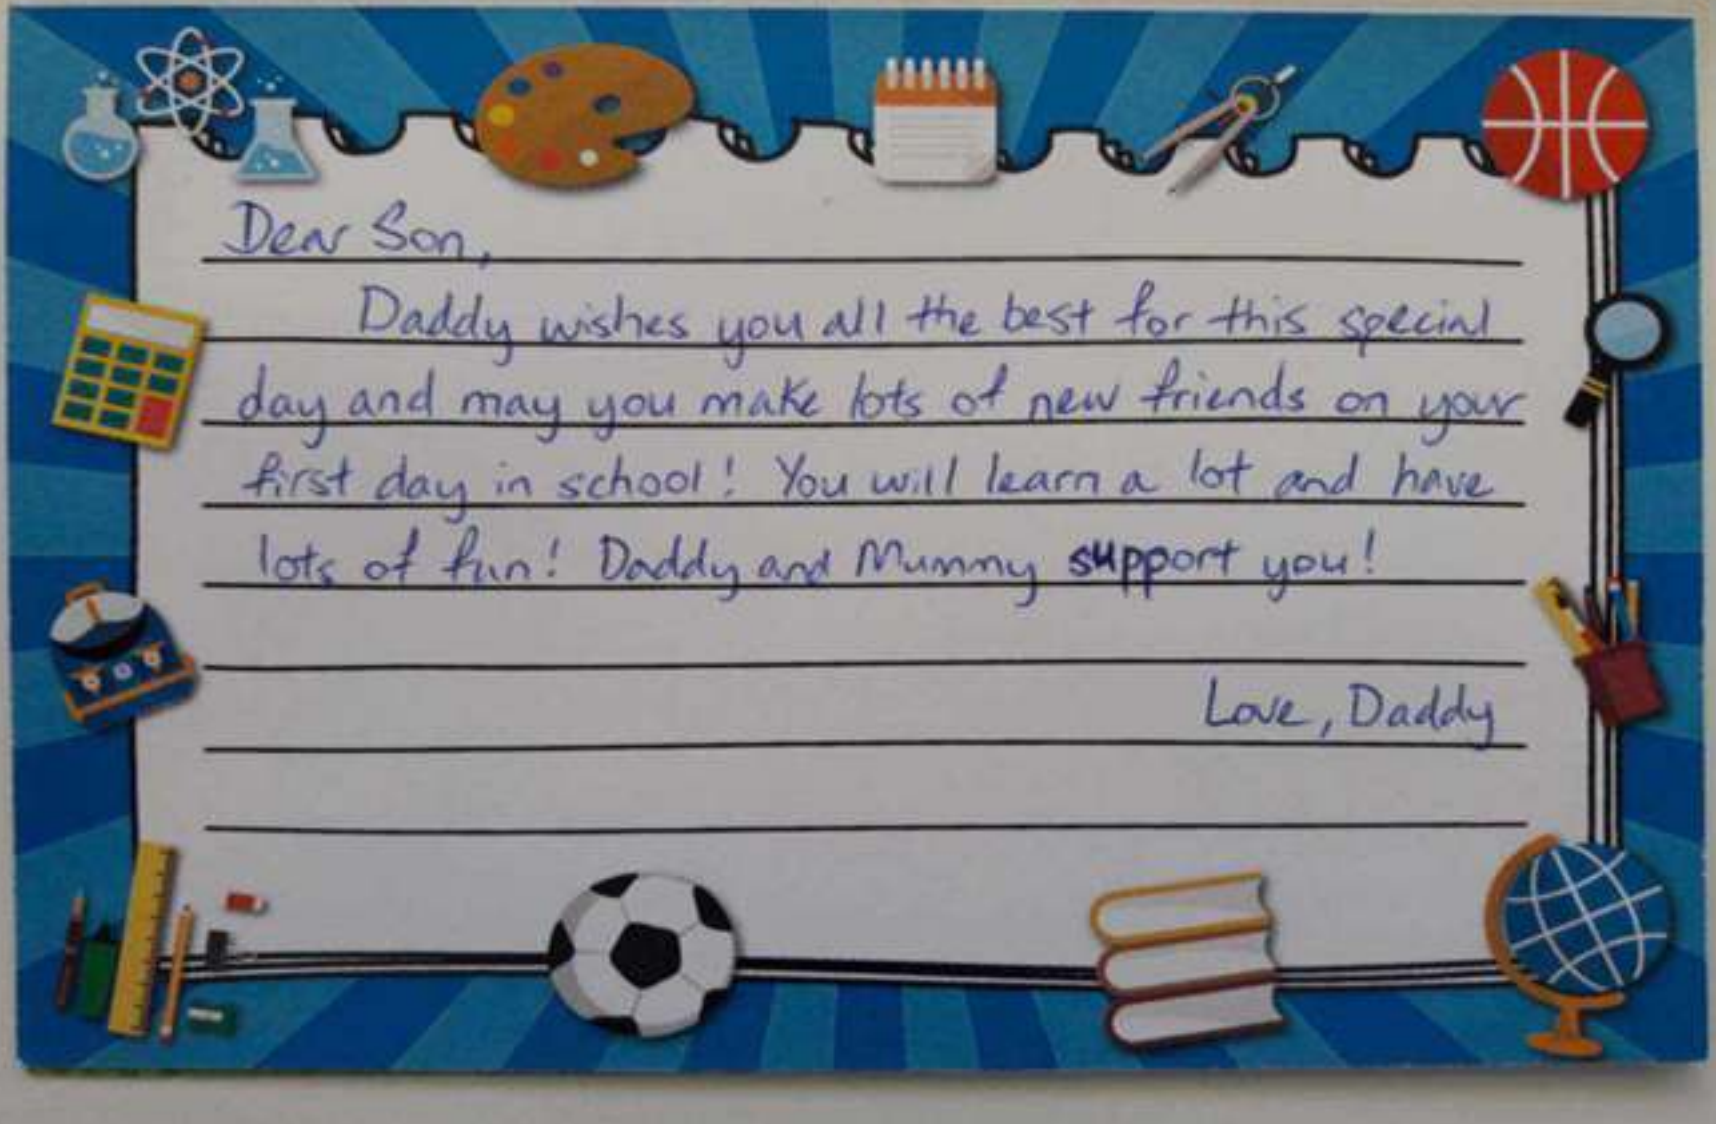 Dear Son,
Daddy wishes you all the best for this special
day and may you make lots of new friends on your
first day in school! You will learn a lot and have
lots of fun! Daddy and Mummy support you!
Love, Daddy